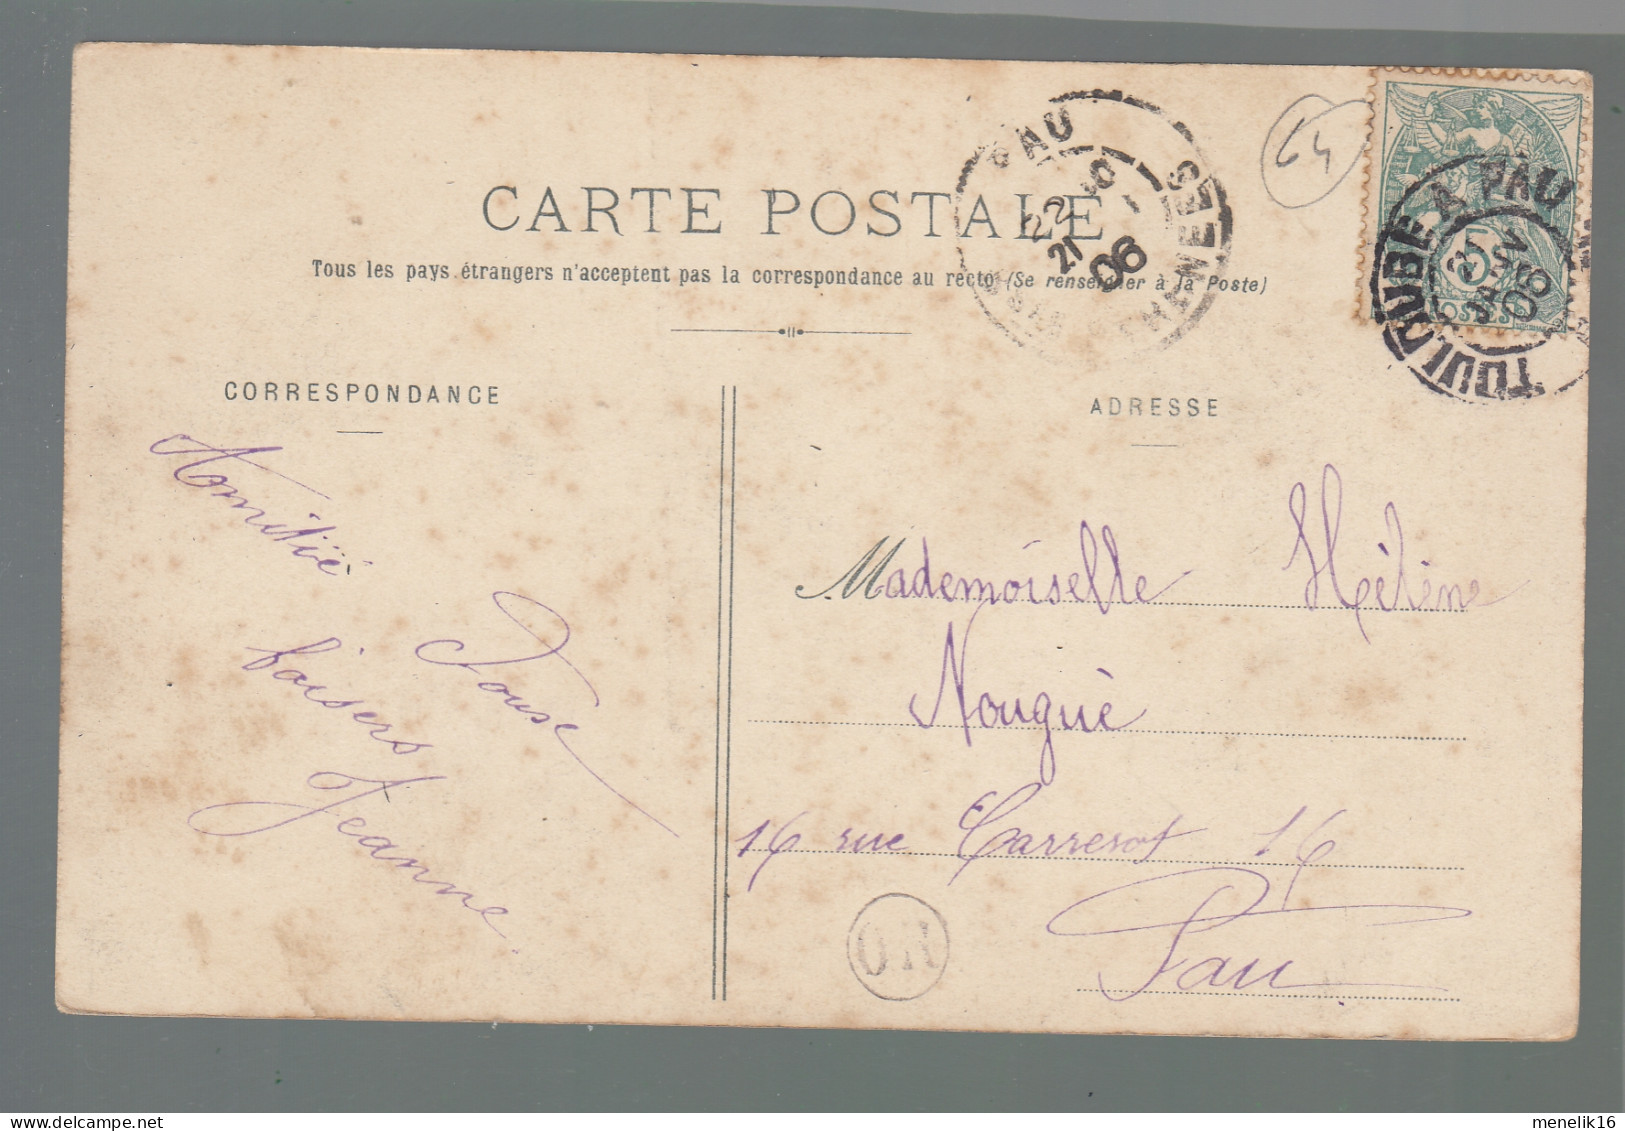 CARTE POSTALE
Tous les pays étrangers n'acceptent pas la correspondance au recto (Se renseigner à la Poste)
PAU
22 30
21 - 1
06
TOULOUSE A PAU
21
JANV
06
5
POSTES
64
CORRESPONDANCE
ADRESSE
Amitié
baisers
Jeanne.
Mademoiselle Hélène
Nouguè
16 rue Carrerot 16
Pau
OR
menelik16